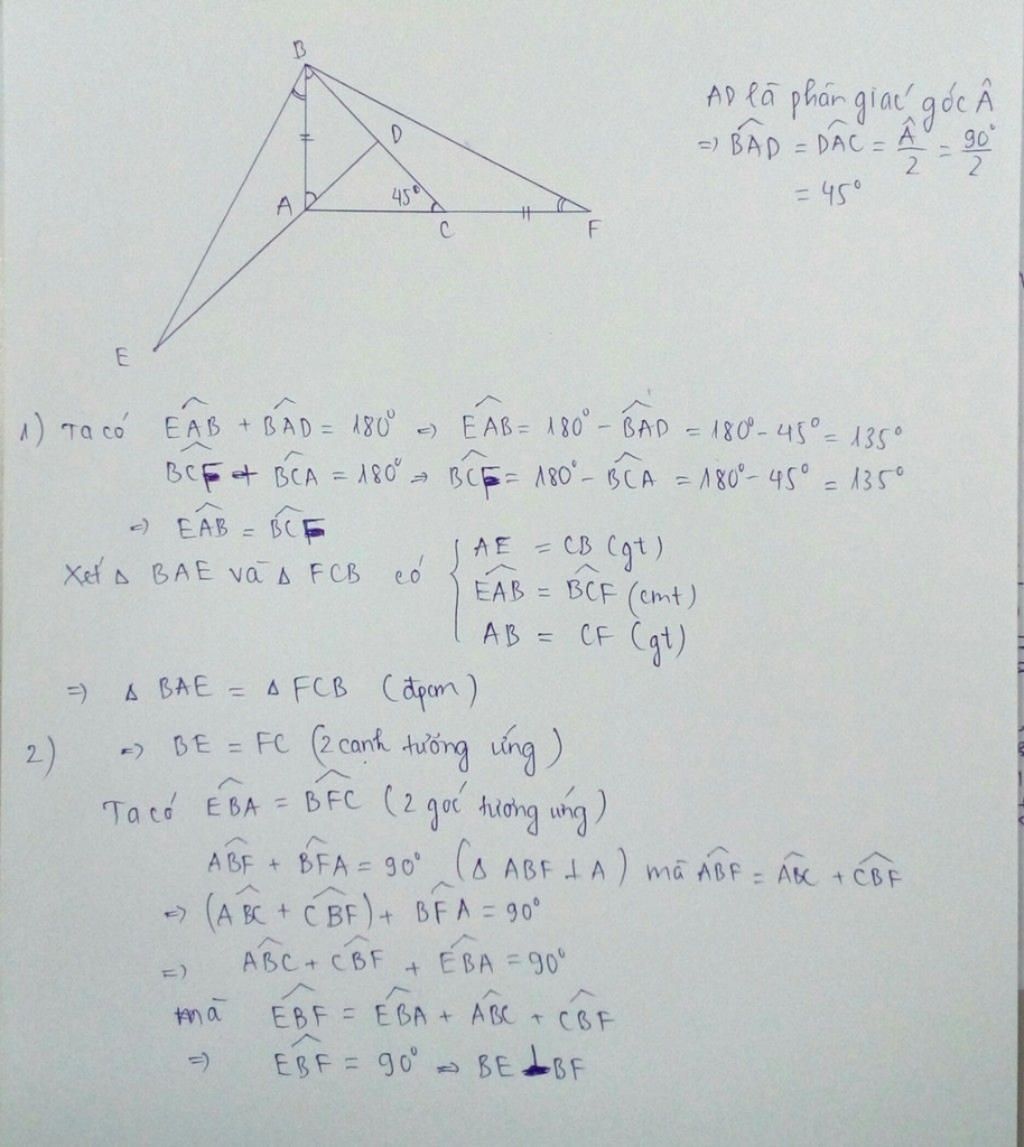 B
D
A
45°
C
F
E
AD là phân giác góc Â
=> BÂD = DÂC = Â/2 = 90°/2
= 45°
1) Ta có EÂB + BÂD = 180° => EÂB = 180° - BÂD = 180° - 45° = 135°
BĈF + BĈA = 180° => BĈF = 180° - BĈA = 180° - 45° = 135°
=> EÂB = BĈF
Xét Δ BAE và Δ FCB có { AE = CB (gt)
EÂB = BĈF (cmt)
AB = CF (gt)
=> Δ BAE = Δ FCB (đpcm)
2) => BE = FC (2 cạnh tướng ứng)
Ta có EB̂A = BF̂C (2 góc tương ứng)
AB̂F + BF̂A = 90° (Δ ABF ⊥ A) mà AB̂F = AB̂C + CB̂F
=> (AB̂C + CB̂F) + BF̂A = 90°
=> AB̂C + CB̂F + EB̂A = 90°
mà EB̂F = EB̂A + AB̂C + CB̂F
=> EB̂F = 90° => BE ⊥ BF